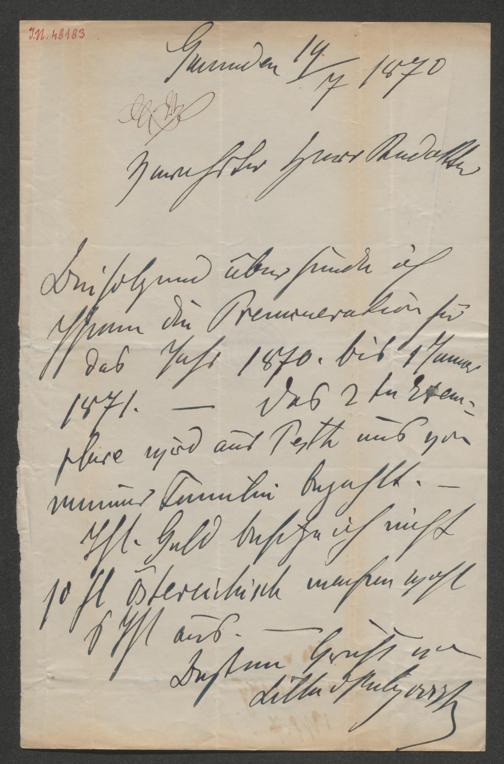 I.N. 48183
Gmunden 19/7 1870
Verehrter Herr Redakteur
Beifolgend übersende ich
Ihnen die Prenumeration für
das Jahr 1870. bis 1 Januar
1871. — das 2te Exem-
plare wird aus Pesth aus von
meiner Familie bezahlt. —
Thl. Geld besitze ich nicht
10 fl österreichisch machen wohl
6 Thl aus. —
Besten Gruß von